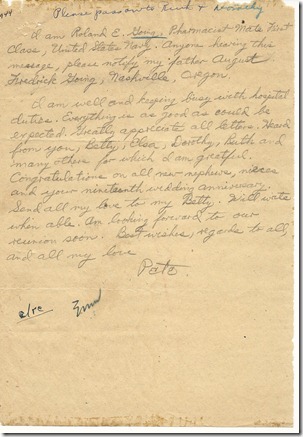 Please pass onto Ruth & Dorothy
I am Roland E. Going, Pharmacist Mate First
Class, United States Navy. Anyone hearing this
message, please notify my father August
Fredrick Going, Nashville, Oregon.
I am well and keeping busy with hospital
duties. Everything is as good as could be
expected. Greatly appreciate all letters. Heard
from you, Betty, Olen, Dorothy, Ruth and
many others for which I am grateful.
Congratulations on all new nephews, nieces
and your nineteenth wedding anniversary.
Send all my love to my Betty. Will write
when able. Am looking forward to our
reunion soon. Best wishes, regards to all,
and all my love
Pate